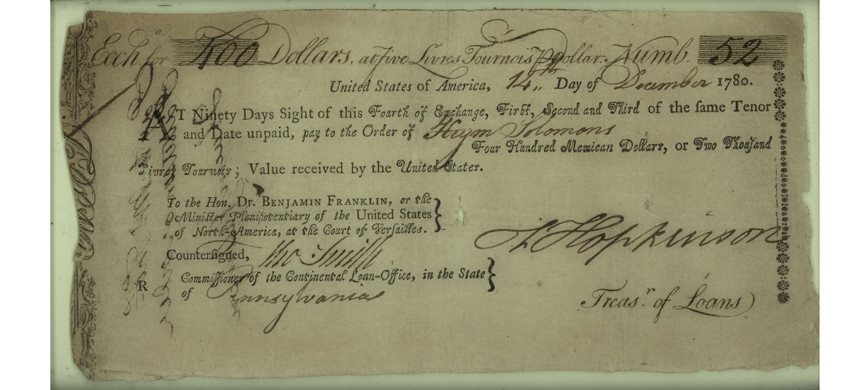 Exchª for 400 Dollars, at five Livres Tournois ℔ Dollar. Numb. 52
United States of America, 14th Day of December 1780.
AT Ninety Days Sight of this Fourth of Exchange, First, Second and Third of the same Tenor
and Date unpaid, pay to the Order of Haym Solomons
Four Hundred Mexican Dollars, or Two Thousand
Livres Tournois; Value received by the United States.
To the Hon. Dr. BENJAMIN FRANKLIN, or the
Minister Plenipotentiary of the United States
of North-America, at the Court of Versailles.
F Hopkinson
Countersigned, Tho Smith
Commissioner of the Continental Loan-Office, in the State
of Pennsylvania
Treasʳ of Loans
R